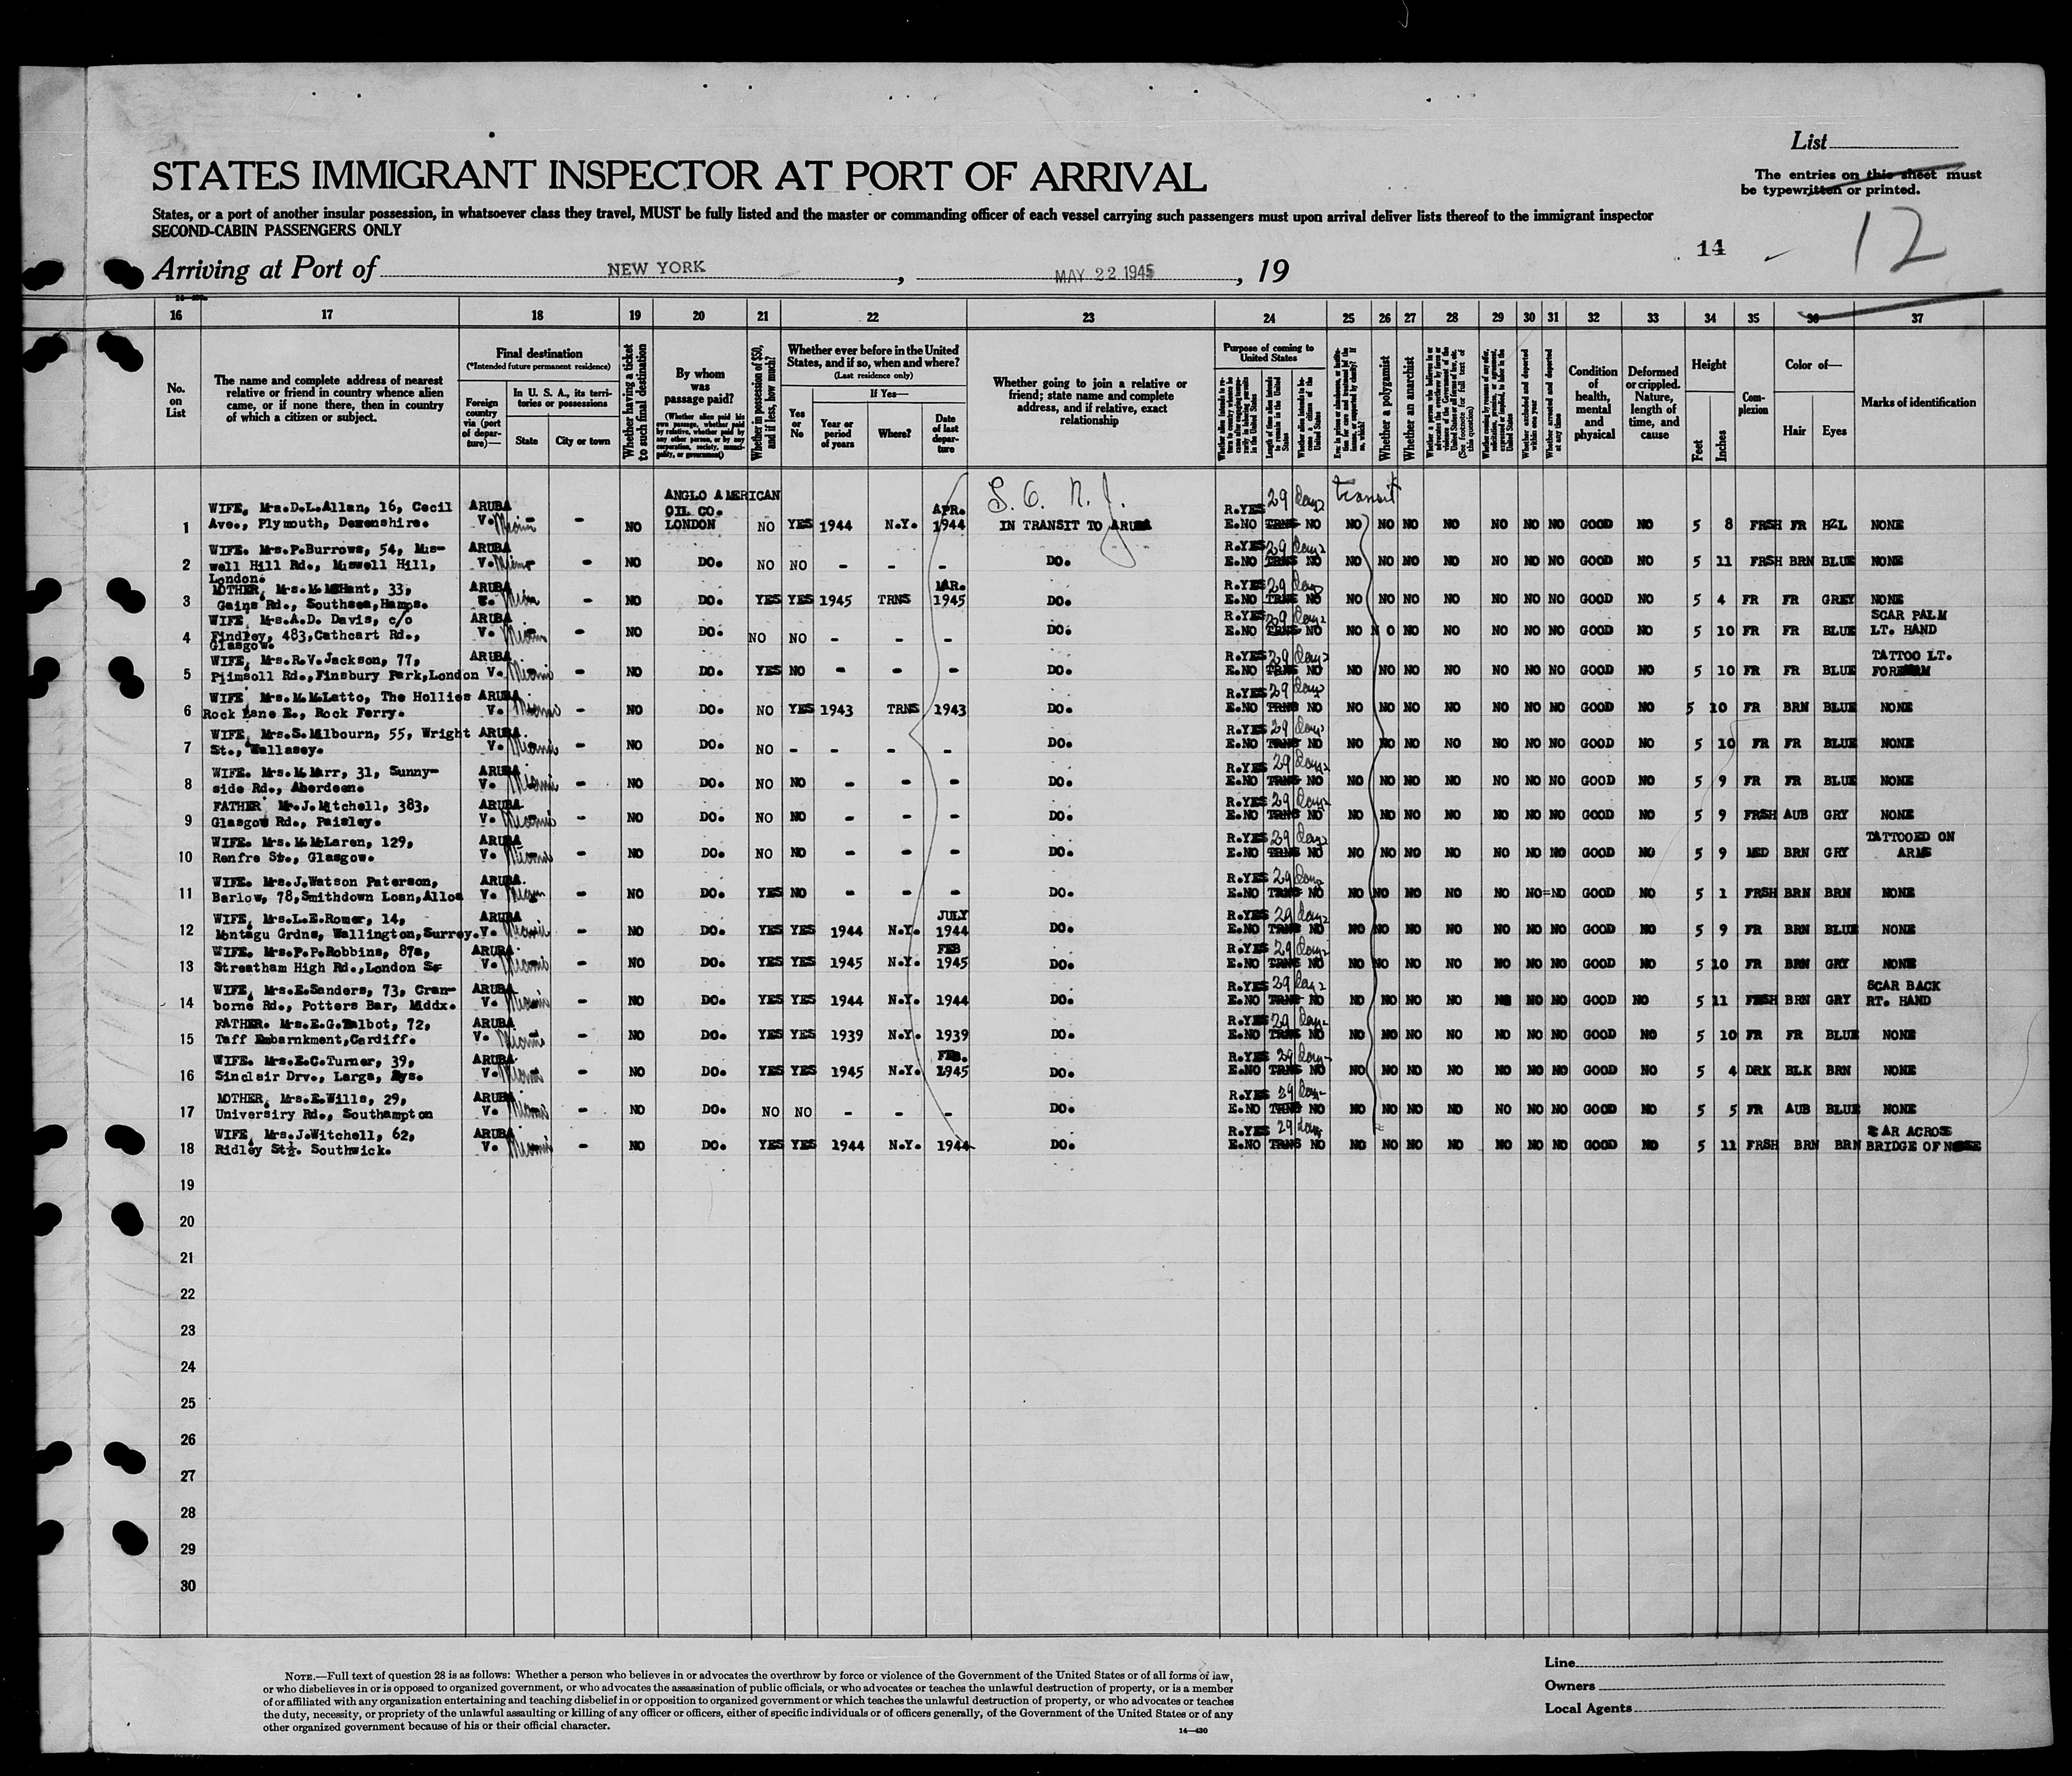 List
The entries on this sheet must
be typewritten or printed.
STATES IMMIGRANT INSPECTOR AT PORT OF ARRIVAL
States, or a port of another insular possession, in whatsoever class they travel, MUST be fully listed and the master or commanding officer of each vessel carrying such passengers must upon arrival deliver lists thereof to the immigrant inspector
SECOND-CABIN PASSENGERS ONLY
14 12
Arriving at Port of NEW YORK, MAY 22 1945, 19
16 17 18 19 20 21 22 23 24 25 26 27 28 29 30 31 32 33 34 35 36 37
No. on List
The name and complete address of nearest
relative or friend in country whence alien
came, or if none there, then in country
of which a citizen or subject.
Final destination
(*Intended future permanent residence)
Foreign country via (port of departure)—
In U. S. A., its territories or possessions
State
City or town
Whether having a ticket to such final destination
By whom was passage paid?
(Whether alien paid his own passage, whether paid by relative, whether paid by any other person, or by any corporation, society, municipality, or government)
Whether in possession of $50, and if less, how much?
Whether ever before in the United States, and if so, when and where?
(Last residence only)
Yes or No
If Yes—
Year or period of years
Where?
Date of last departure
Whether going to join a relative or
friend; state name and complete
address, and if relative, exact
relationship
Purpose of coming to United States
Whether a polygamist
Whether an anarchist
Condition of health, mental and physical
Deformed or crippled. Nature, length of time, and cause
Height
Feet
Inches
Complexion
Color of—
Hair
Eyes
Marks of identification
ANGLO AMERICAN
S. O. N. J. 29 days transit
WIFE, Mrs.D.L.Allan, 16, Cecil ARUBA OIL CO. APR. R.YES
1 Ave., Plymouth, Devenshire. V. Miami - NO LONDON NO YES 1944 N.Y. 1944 IN TRANSIT TO ARUBA E.NO TRNS NO NO NO NO NO NO NO NO GOOD NO 5 8 FRSH FR HZL NONE
WIFE. Mrs.P.Burrows, 54, Mus- ARUBA R.YES 29 days
2 well Hill Rd., Muswell Hill, V. Miami - NO DO. NO NO - - - DO. E.NO TRNS NO NO NO NO NO NO NO NO GOOD NO 5 11 FRSH BRN BLUE NONE
London.
MOTHER, Mrs.M. Hant, 33, ARUBA MAR. R.YES 29 days
3 Gains Rd., Southsea, Hamps. Miami - NO DO. YES YES 1945 TRNS 1945 DO. E.NO TRNS NO NO NO NO NO NO NO NO GOOD NO 5 4 FR FR GREY NONE
WIFE, Mrs.A.D. Davis, c/o ARUBA R.YES 29 days SCAR PALM
4 Findley, 483,Cathcart Rd., V. Miami - NO DO. NO NO - - - DO. E.NO TRNS NO NO N O NO NO NO NO NO GOOD NO 5 10 FR FR BLUE LT. HAND
Glasgow.
WIFE, Mrs.R.V.Jackson, 77, ARUBA R.YES 29 days TATTOO LT.
5 Plimsoll Rd.,Finsbury Park,London V. Miami - NO DO. YES NO - - - DO. E.NO TRNS NO NO NO NO NO NO NO NO GOOD NO 5 10 FR FR BLUE FOREARM
WIFE Mrs.M.McLatto, The Hollies ARUBA R.YES 29 days
6 Rock Lane E., Rock Ferry. V. Miami - NO DO. NO YES 1943 TRNS 1943 DO. E.NO TRNS NO NO NO NO NO NO NO NO GOOD NO 5 10 FR BRN BLUE NONE
WIFE, Mrs.S.Milbourn, 55, Wright ARUBA. R.YES 29 days
7 St., Wallasey. V. Miami - NO DO. NO - - - - DO. E.NO TRNS NO NO NO NO NO NO NO NO GOOD NO 5 10 FR FR BLUE NONE
WIFE. Mrs.M.Marr, 31, Sunny- ARUBA R.YES 29 days
8 side Rd., Aberdeen. V. Miami - NO DO. NO NO - - - DO. E.NO TRNS NO NO NO NO NO NO NO NO GOOD NO 5 9 FR FR BLUE NONE
FATHER Mr.J.Mitchell, 383, ARUBA R.YES 29 days
9 Glasgow Rd., Paisley. V. Miami - NO DO. NO NO - - - DO. E.NO TRNS NO NO NO NO NO NO NO NO GOOD NO 5 9 FRSH AUB GRY NONE
WIFE. Mrs.M.McLaren, 129, ARUBA R.YES 29 days TATTOOED ON
10 Renfre St., Glasgow. V. Miami - NO DO. NO NO - - - DO. E.NO TRNS NO NO NO NO NO NO NO NO GOOD NO 5 9 MED BRN GRY ARMS
WIFE. Mrs.J.Watson Paterson, ARUBA. R.YES 29 days
11 Barlow, 78,Smithdown Loan,Alloa V. Miami - NO DO. YES NO - - - DO. E.NO TRNS NO NO NO NO NO NO NO=NO GOOD NO 5 1 FRSH BRN BRN NONE
WIFE, Mrs.L.E.Romer, 14, ARUBA JULY R.YES 29 days
12 Montagu Grdns, Wallington,Surrey. V. Miami - NO DO. YES YES 1944 N.Y. 1944 DO. E.NO TRNS NO NO NO NO NO NO NO NO GOOD NO 5 9 FR BRN BLUE NONE
WIFE. Mrs.P.P.Robbins, 87a, ARUBA. FEB R.YES 29 days
13 Streatham High Rd.,London V. Miami - NO DO. YES YES 1945 N.Y. 1945 DO. E.NO TRNS NO NO NO NO NO NO NO NO GOOD NO 5 10 FR BRN GRY NONE
WIFE, Mrs.E.Sanders, 73, Cran- ARUBA R.YES 29 days SCAR BACK
14 borne Rd., Potters Bar, Middx. V. Miami - NO DO. YES YES 1944 N.Y. 1944 DO. E.NO TRNS NO NO NO NO NO NO NO NO GOOD NO 5 11 FRSH BRN GRY RT. HAND
FATHER. Mrs.E.G.Talbot, 72, ARUBA R.YES 29 days
15 Taff Embarnkment,Cardiff. V. Miami - NO DO. YES YES 1939 N.Y. 1939 DO. E.NO TRNS NO NO NO NO NO NO NO NO GOOD NO 5 10 FR FR BLUE NONE
WIFE. Mrs.E.C.Turner, 39, ARUBA. FEB. R.YES 29 days
16 Sinclair Drv., Largs, V. Miami - NO DO. YES YES 1945 N.Y. 1945 DO. E.NO TRNS NO NO NO NO NO NO NO NO GOOD NO 5 4 DRK BLK BRN NONE
MOTHER, Mrs.E.Wills, 29, ARUBA R.YES 29 days
17 Universiry Rd., Southampton V. Miami - NO DO. NO NO - - - DO. E.NO TRNS NO NO NO NO NO NO NO NO GOOD NO 5 5 FR AUB BLUE NONE
WIFE, Mrs.J.Witchell, 62, ARUBA R.YES 29 days SCAR ACROSS
18 Ridley St. Southwick. V. Miami - NO DO. YES YES 1944 N.Y. 1944 DO. E.NO TRNS NO NO NO NO NO NO NO NO GOOD NO 5 11 FRSH BRN BRN BRIDGE OF NOSE
19
20
21
22
23
24
25
26
27
28
29
30
NOTE.—Full text of question 28 is as follows: Whether a person who believes in or advocates the overthrow by force or violence of the Government of the United States or of all forms of law,
or who disbelieves in or is opposed to organized government, or who advocates the assassination of public officials, or who advocates or teaches the unlawful destruction of property, or is a member
of or affiliated with any organization entertaining and teaching disbelief in or opposition to organized government or which teaches the unlawful destruction of property, or who advocates or teaches
the duty, necessity, or propriety of the unlawful assaulting or killing of any officer or officers, either of specific individuals or of officers generally, of the Government of the United States or of any
other organized government because of his or their official character.
14—430
Line
Owners
Local Agents